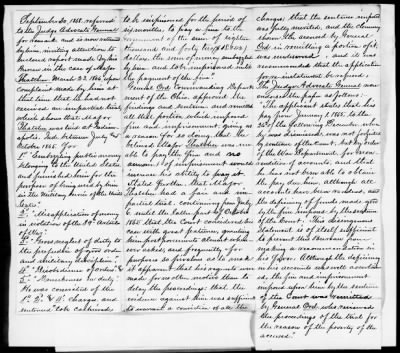 September 30. 1868. referred
to the Judge Advocate General
for remark, and is now returned
by him, inviting attention to
enclosed report made by him
thereon in the case of Major
Thatcher, March 23. 1866, upon
complaint made by him at
that time that he had not
received an impartial trial,
which shows that Major
Thatcher was tried at Indian-
apolis, Ind. between July &
October 1865. For
1st Embezzling public money
belonging to the United States
and furnished him for the
purpose of being used by him
in the Military Service of the United
States"
2nd "Misapplication of money
in violation of the 39th Article
of War".
3rd "Gross neglect of duty to
the prejudice of good order
and military discipline".
4th "Disobedience of orders" &
5th "Drunkenness on duty."
He was convicted of the
1st, 2nd & 4th charges, and
sentenced to be cashiered,
to be imprisoned for the period of
six months, to pay a fine to the
Government of the sum of eight
thousand and forty two
dollars, the sum of money embezzled
by him and to be imprisoned until
the payment of the fine".
General Ord Commanding Depart-
ment of the Ohio approved the
findings and sentence and remitted
all that portion which imposed
fine and imprisonment, giving as
reason "for so doing, that he
believed Major Thatcher was un-
able to pay the fine and no
amount of imprisonment would
increase his ability to pay it.
States further, that Major
Thatcher had a fair and im-
partial trial, continuing from July
to until the latter part of October
1865, that the Court considered his
case with great patience, granting
him postponements almost when-
ever asked, and frequently for
purposes so frivolous as to make
it apparent that his requests were
made for no other motive than to
delay the proceedings; that the
evidence against him was sufficient
to warrant a conviction of all the
charges; that the sentence imposed
was justly merited, and the clemency
shown the accused by General
Ord in remitting a portion of it,
was undeserved, and it was
recommended that the application
for re-instatement be refused.
The Judge Advocate General
in his paper as follows:
"The applicant states that his
pay from January 1. 1865. to the
26th of the following December when
he was dismissed, was not forfeited
by sentence of the Court, but by order
of the War Department, for the non-
rendition of accounts, and that
he has not been able to obtain
the pay due him, although all
accounts have been rendered, and
the deficiency of funds made good
by the fine imposed by the sentence
of the Court". This disingenuous
statement is of itself sufficient
to prevent this Bureau from
making a recommendation in
his favor. Although the deficiency
in his accounts exceeds
the fine and imprisonment
imposed upon him by the sentence
of the Court was remitted
by General Ord, who reviewed
the proceedings of the trial for
the reason of the poverty of the
accused."